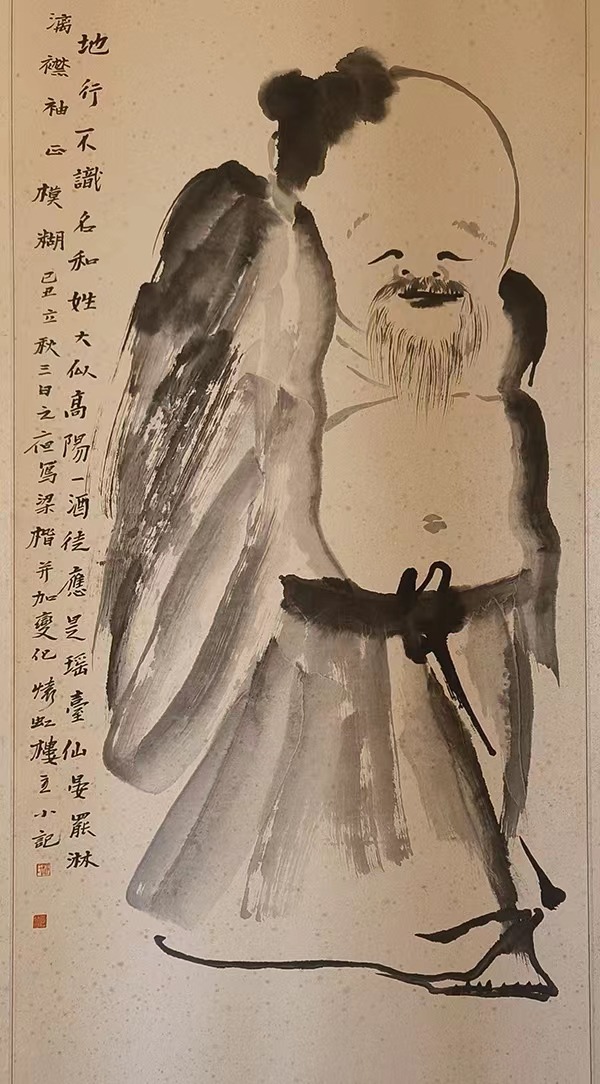 地行不識名和姓大似高陽一酒徒應是瑶臺仙晏罷淋
漓襟袖正模糊己丑立秋三日之夜寫梁楷并加變化虹樓主小記